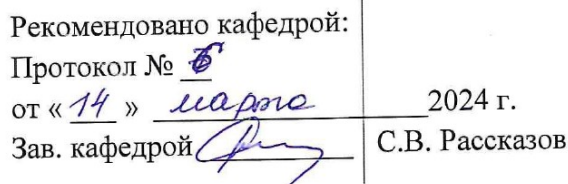 Рекомендовано кафедрой:
Протокол № 6
от « 14 » марта 2024 г.
Зав. кафедрой С.В. Рассказов